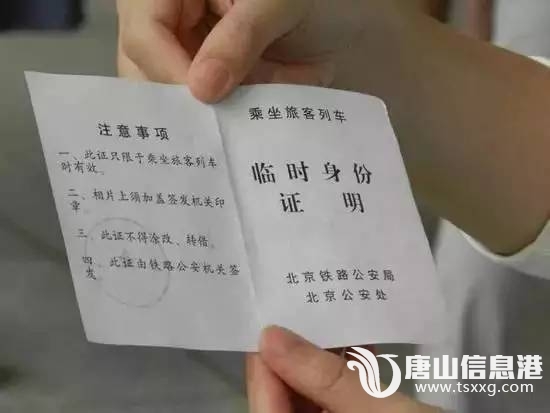 注意事项
一、此证只限于乘坐旅客列车
时有效。
二、相片上须加盖签发机关印
章。
三、此证不得涂改、转借。
四、此证由铁路公安机关签
发。
乘坐旅客列车
临时身份
证明
北京铁路公安局
北京公安处
唐山信息港
www.tsxxg.com